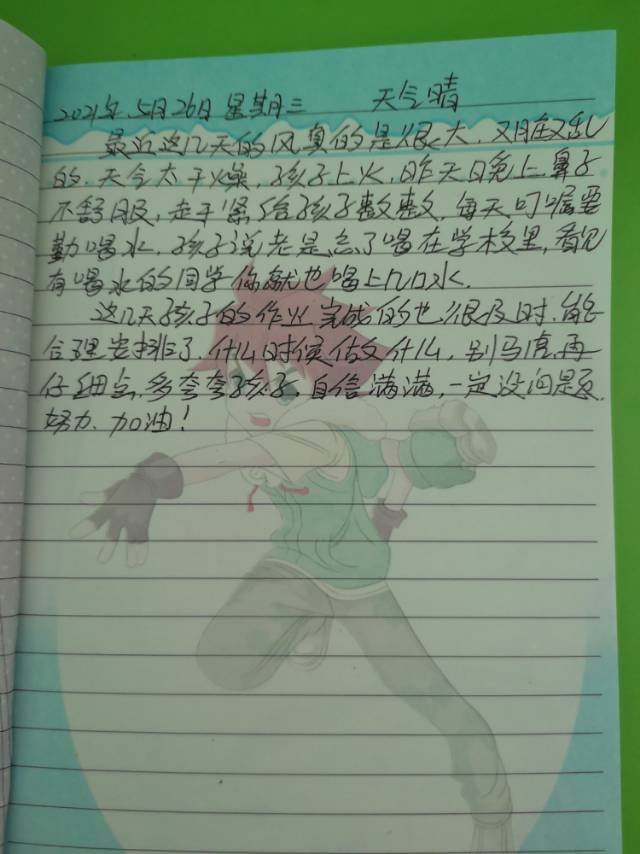 2021年.5月26日 星期三 天气晴
最近这几天的风真的是很大,又脏又乱
的.天气太干燥,孩子上火,昨天日晚上鼻子
不舒服,走干紧给孩子敷敷,每天叮嘱要
勤喝水,孩子说老是忘了喝在学校里,看见
有喝水的同学你就也喝上几口水.
这几天孩子的作业完成的也很及时.能
合理安排了.什么时候做什么,别马虎.再
仔细点,多夸夸孩子,自信满满,一定没问题.
努力、加油!